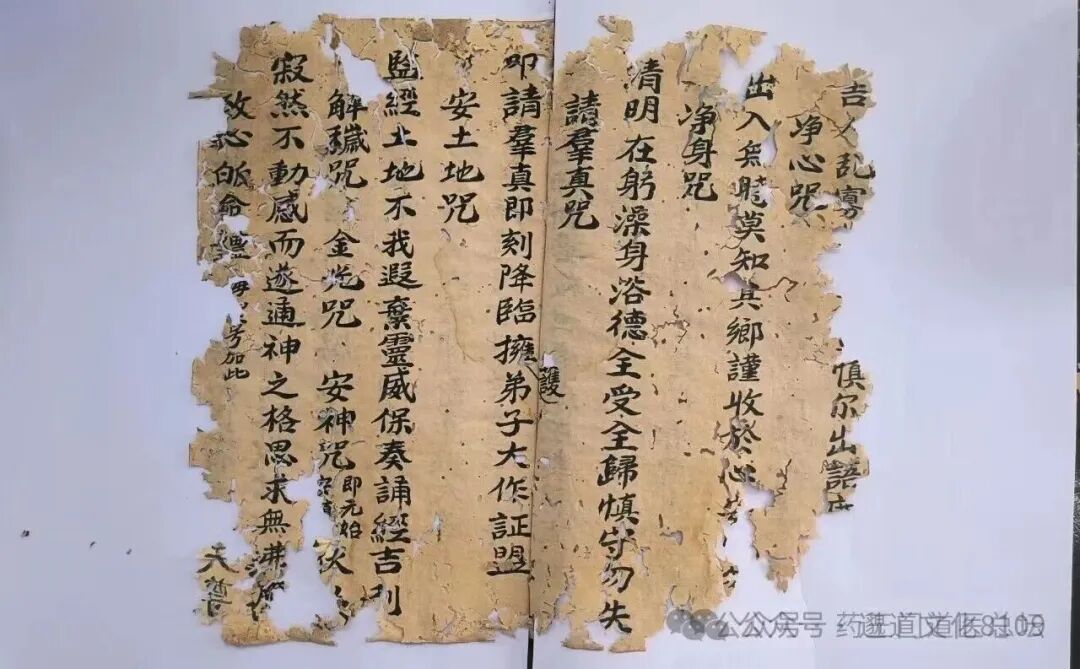 吉人 寡 慎尔出語
净心咒
出入無時莫知其鄉謹收於心
净身咒
清明在躬澡身浴德全受全歸慎守勿失
請羣真咒
叩請羣真即刻降臨擁護弟子大作証盟
安土地咒
監經土地不我遐棄靈威保奏誦經吉利
解穢咒 金光咒 安神咒 即元始
寂然不動感而遂通神之格思求無
皈命
加此
公众号